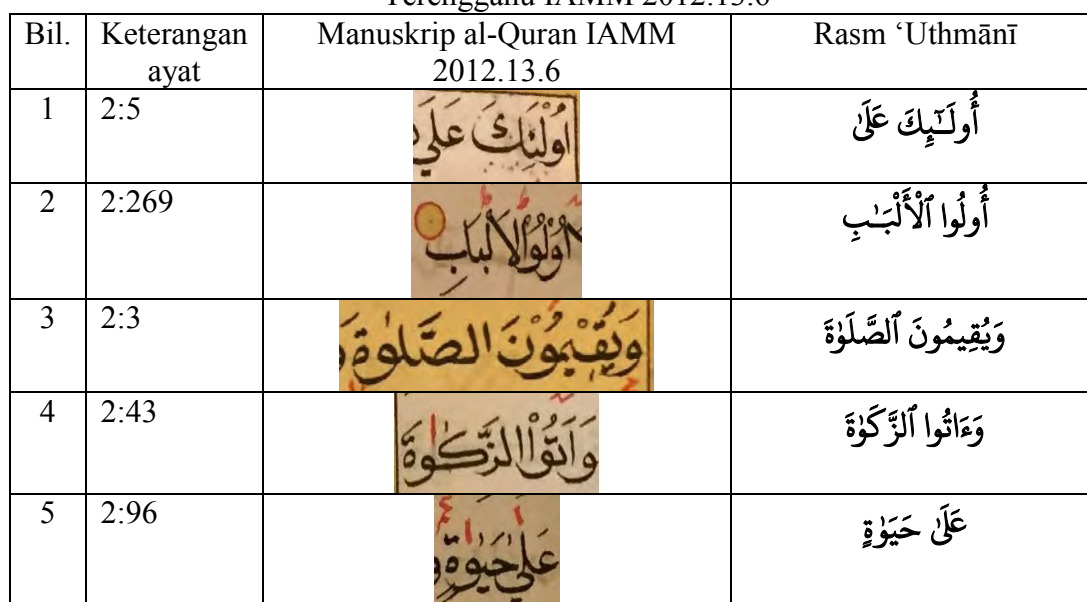 Terengganu IAMM 2012.13.6
Bil. Keterangan ayat Manuskrip al-Quran IAMM 2012.13.6 Rasm ‘Uthmānī
1 2:5 اُولٰئِكَ عَلَي أُولَـٰٓئِكَ عَلَىٰ
2 2:269 اُولُوا الْاَلْبَابِ أُولُوا ٱلْأَلْبَـٰبِ
3 2:3 وَيُقِيْمُوْنَ الصَّلٰوةَ وَيُقِيمُونَ ٱلصَّلَوٰةَ
4 2:43 وَاٰتُوا الزَّكٰوةَ وَءَاتُوا ٱلزَّكَوٰةَ
5 2:96 عَلٰي حَيٰوةٍ عَلَىٰ حَيَوٰةٍ